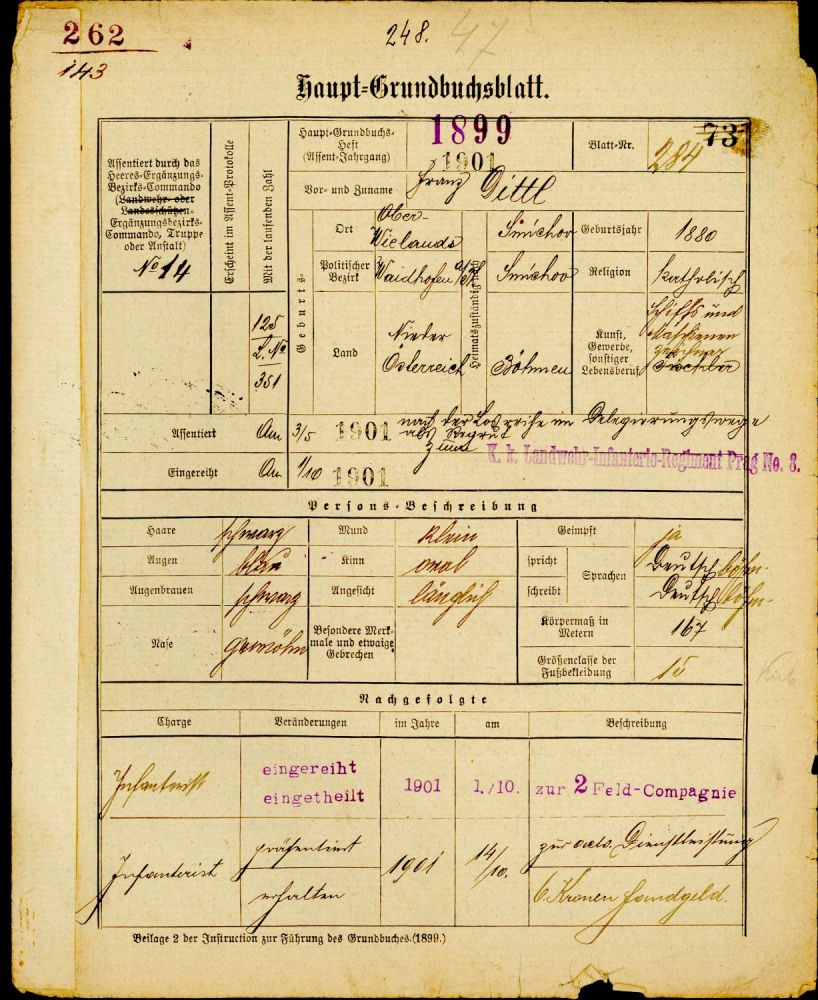 262
143
248.
47
Haupt-Grundbuchsblatt.
Assentiert durch das
Heeres-Ergänzungs-
Bezirks-Commando
(Landwehr- oder
Landesschützen-
Ergänzungsbezirks-
Commando, Truppe
oder Anstalt)
No 14
Erscheint im Assent-Protokolle
Mit der laufenden Zahl
125
L. No
351
Haupt-Grundbuchs-
Heft
(Assent-Jahrgang)
1899
1901
Blatt-Nr.
73
284
Vor- und Zuname
Franz Dittl
Geburts-
Ort
Ober-
Wielands
Heimatszuständig
Smichov
Geburtsjahr
1880
Politischer
Bezirk
Waidhofen
Smichov
Religion
Katholisch
Land
Nieder
Österreich
Böhmen
Kunst,
Gewerbe,
sonstiger
Lebensberuf
Schiffs und
Maschinen
Assentiert
Am
3/5
1901
nach der Losreihe im Delegierungswege
als Rekrut
zum
K. k. Landwehr-Infanterie-Regiment Prag No. 8.
Eingereiht
Am
1/10
1901
Persons-Beschreibung
Haare
schwarz
Mund
klein
Geimpft
ja
Augen
blau
Kinn
oval
spricht
Sprachen
Deutsch böhm.
Augenbrauen
schwarz
Angesicht
länglich
schreibt
Deutsch böhm.
Nase
gewöhn
Besondere Merk-
male und etwaige
Gebrechen
Körpermaß in
Metern
167
Größenclasse der
Fußbekleidung
15
Nachgefolgte
Charge
Veränderungen
im Jahre
am
Beschreibung
Infanterist
eingereiht
eingetheilt
1901
1./10.
zur 2 Feld-Compagnie
Infanterist
präsentiert
1901
14/10.
zur activ. Dienstleistung
erhalten
6 Kronen Handgeld.
Beilage 2 der Instruction zur Führung des Grundbuches.(1899.)